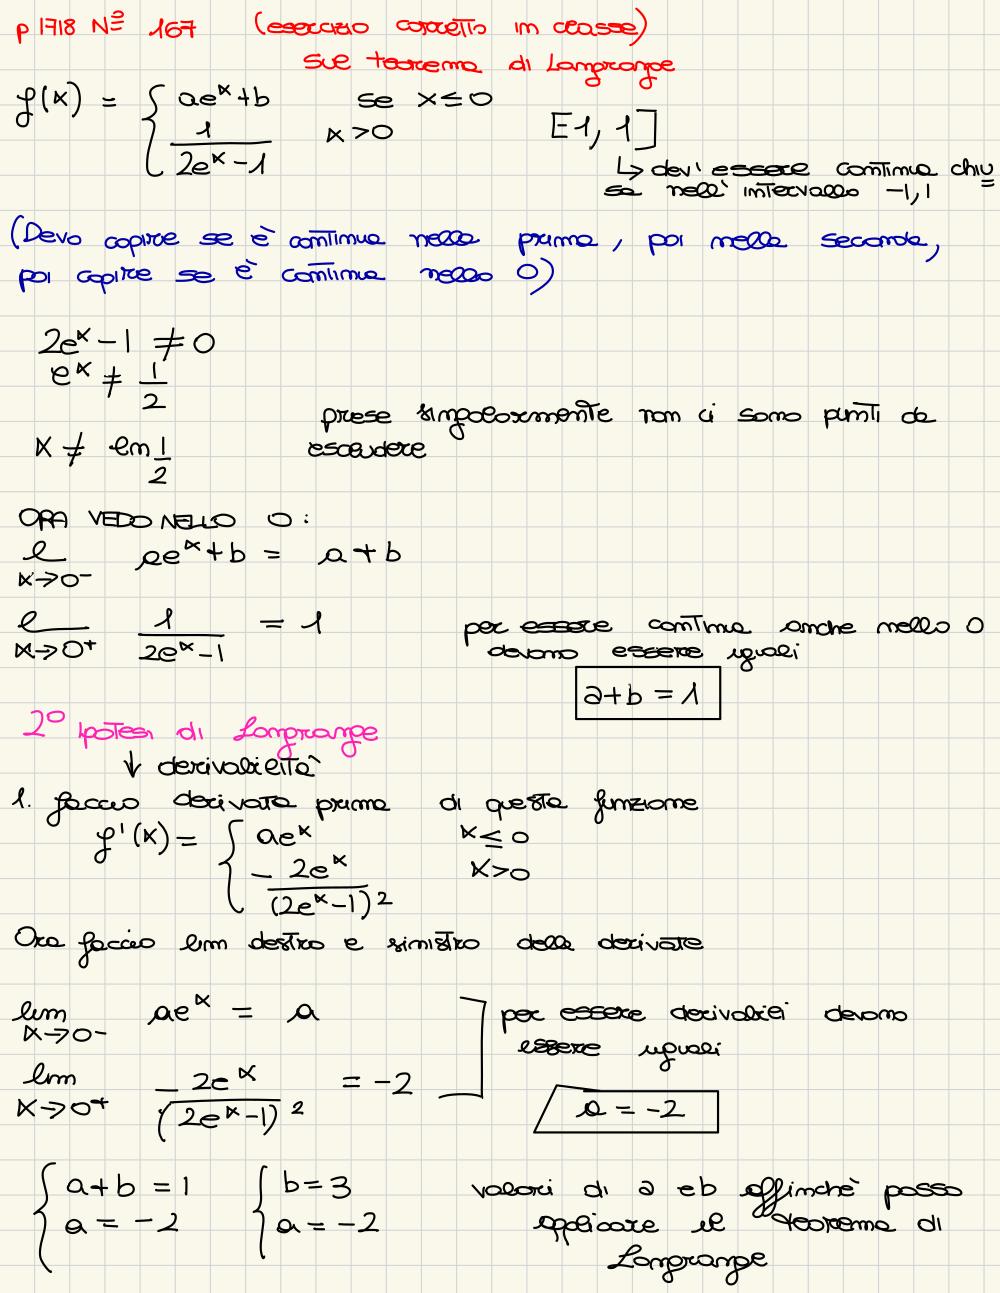 p 1718 Nº 167 (esercizio corretto in classe)
sul teorema di Langrange
f(x) = { ae^x + b se x ≤ 0
1/(2e^x - 1) x > 0
[-1, 1]
↳ dev'essere continua chiu
sa nell'intervallo -1,1
(Devo capire se è continua nella prima, poi nella seconda,
poi capire se è continua nello 0)
2e^x - 1 ≠ 0
e^x ≠ 1/2
x ≠ ln 1/2
prese singolarmente non ci sono punti da
escludere
ORA VEDO NELLO 0:
l x→0⁻ ae^x + b = a + b
l x→0⁺ 1/(2e^x - 1) = 1
per essere continua anche nello 0
devono essere uguali
a + b = 1
2° ipotesi di Langrange
↓ derivabilità
1. faccio derivata prima di questa funzione
f'(x) = { ae^x x ≤ 0
- 2e^x/(2e^x - 1)² x > 0
Ora faccio lim destro e sinistro della derivata
lim x→0⁻ ae^x = a
lim x→0⁺ - 2e^x/(2e^x - 1)² = -2
per essere derivabili devono
essere uguali
a = -2
{ a + b = 1 { b = 3
a = -2 a = -2
valori di a e b affinché posso
applicare il teorema di
Langrange